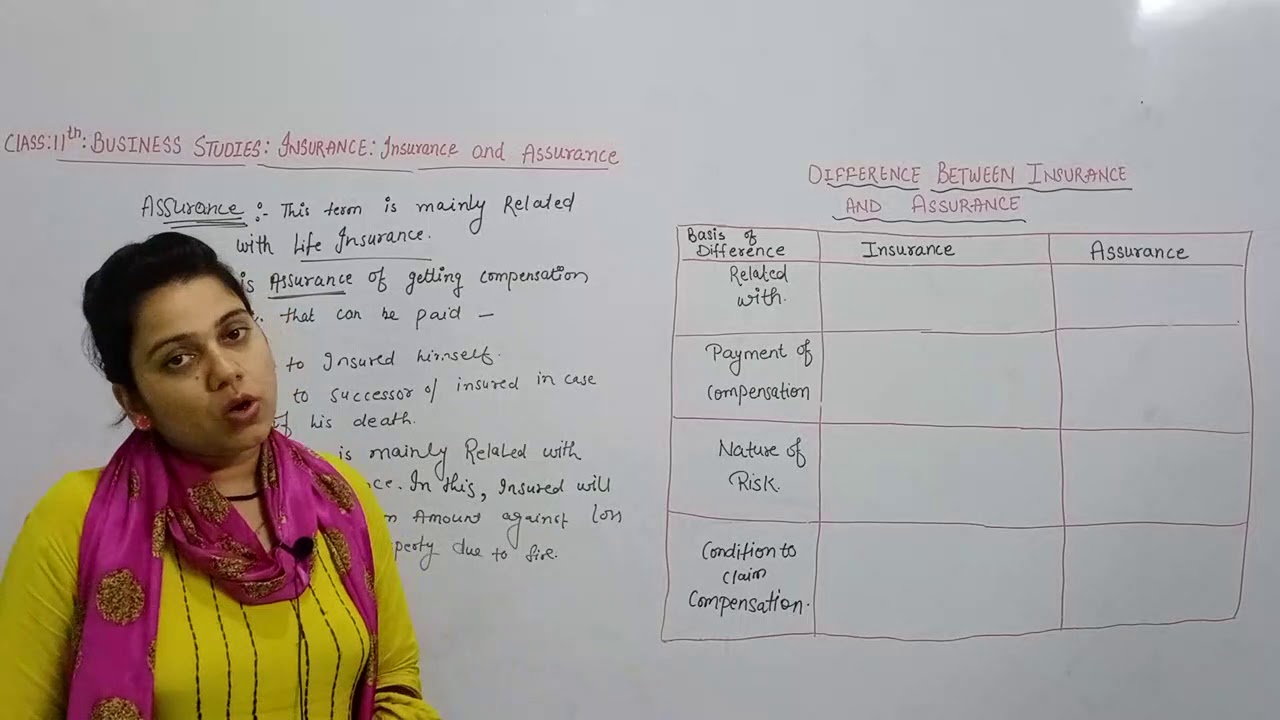 CLASS:11th: BUSINESS STUDIES: INSURANCE: Insurance and Assurance
Assurance :- This term is mainly Related
with Life Insurance.
is Assurance of getting compensation
that can be paid —
to Insured himself.
to successor of insured in case
of his death.
is mainly Related with
ce. In this, Insured will
Amount against loss
perty due to fire.
DIFFERENCE BETWEEN INSURANCE
AND ASSURANCE
Basis of
Difference
Insurance
Assurance
Related
with.
Payment of
compensation
Nature of
Risk.
Condition to
claim
compensation.